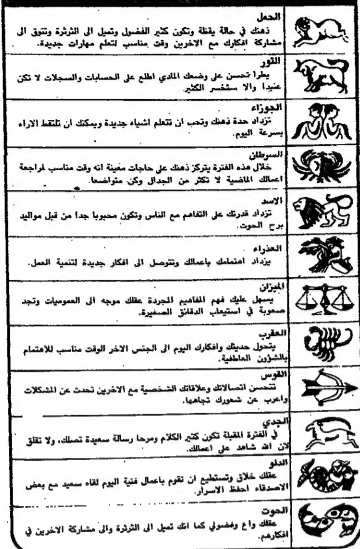 الحمل
ذهنك في حالة يقظة وتكون كثير الفضول وتميل الى الثرثرة وتتوق الى
مشاركة افكارك مع الاخرين وقت مناسب لتعلم مهارات جديدة.
الثور
يطرأ تحسن على وضعك المادي اطلع على الحسابات والسجلات لا تكن
عنيدا والا ستخسر الكثير.
الجوزاء
تزداد حدة ذهنك وتحب ان تتعلم اشياء جديدة ويمكنك ان تلتقط الاراء
بسرعة اليوم.
السرطان
خلال هذه الفترة يتركز ذهنك على حاجات معينة انه وقت مناسب لمراجعة
اعمالك الماضية لا تكثر من الجدال وكن متواضعا.
الاسد
تزداد قدرتك على التفاهم مع الناس وتكون محبوبا جدا من قبل مواليد
برج الحوت.
العذراء
يزداد اهتمامك باعمالك وتتوصل الى افكار جديدة لتنمية العمل.
الميزان
يسهل عليك فهم المفاهيم المجردة عقلك موجه الى العموميات وتجد
صعوبة في استيعاب الدقائق الصغيرة.
العقرب
يتحول حديثك وافكارك اليوم الى الجنس الاخر الوقت مناسب للاهتمام
بالشؤون العاطفية.
القوس
تتحسن اتصالاتك وعلاقاتك الشخصية مع الاخرين تحدث عن المشكلات
واعرب عن شعورك تجاهها.
الجدي
في الفترة المقبلة تكون كثير الكلام ومرحا رسالة سعيدة تصلك، ولا تقلق
لان الله شاهد على اعمالك.
الدلو
عقلك خلاق وتستطيع ان تقوم باعمال فنية اليوم لقاء سعيد مع بعض
الاصدقاء احفظ الاسرار.
الحوت
عقلك واع وفضولي كما انك تميل الى الثرثرة والى مشاركة الاخرين في
افكارهم.